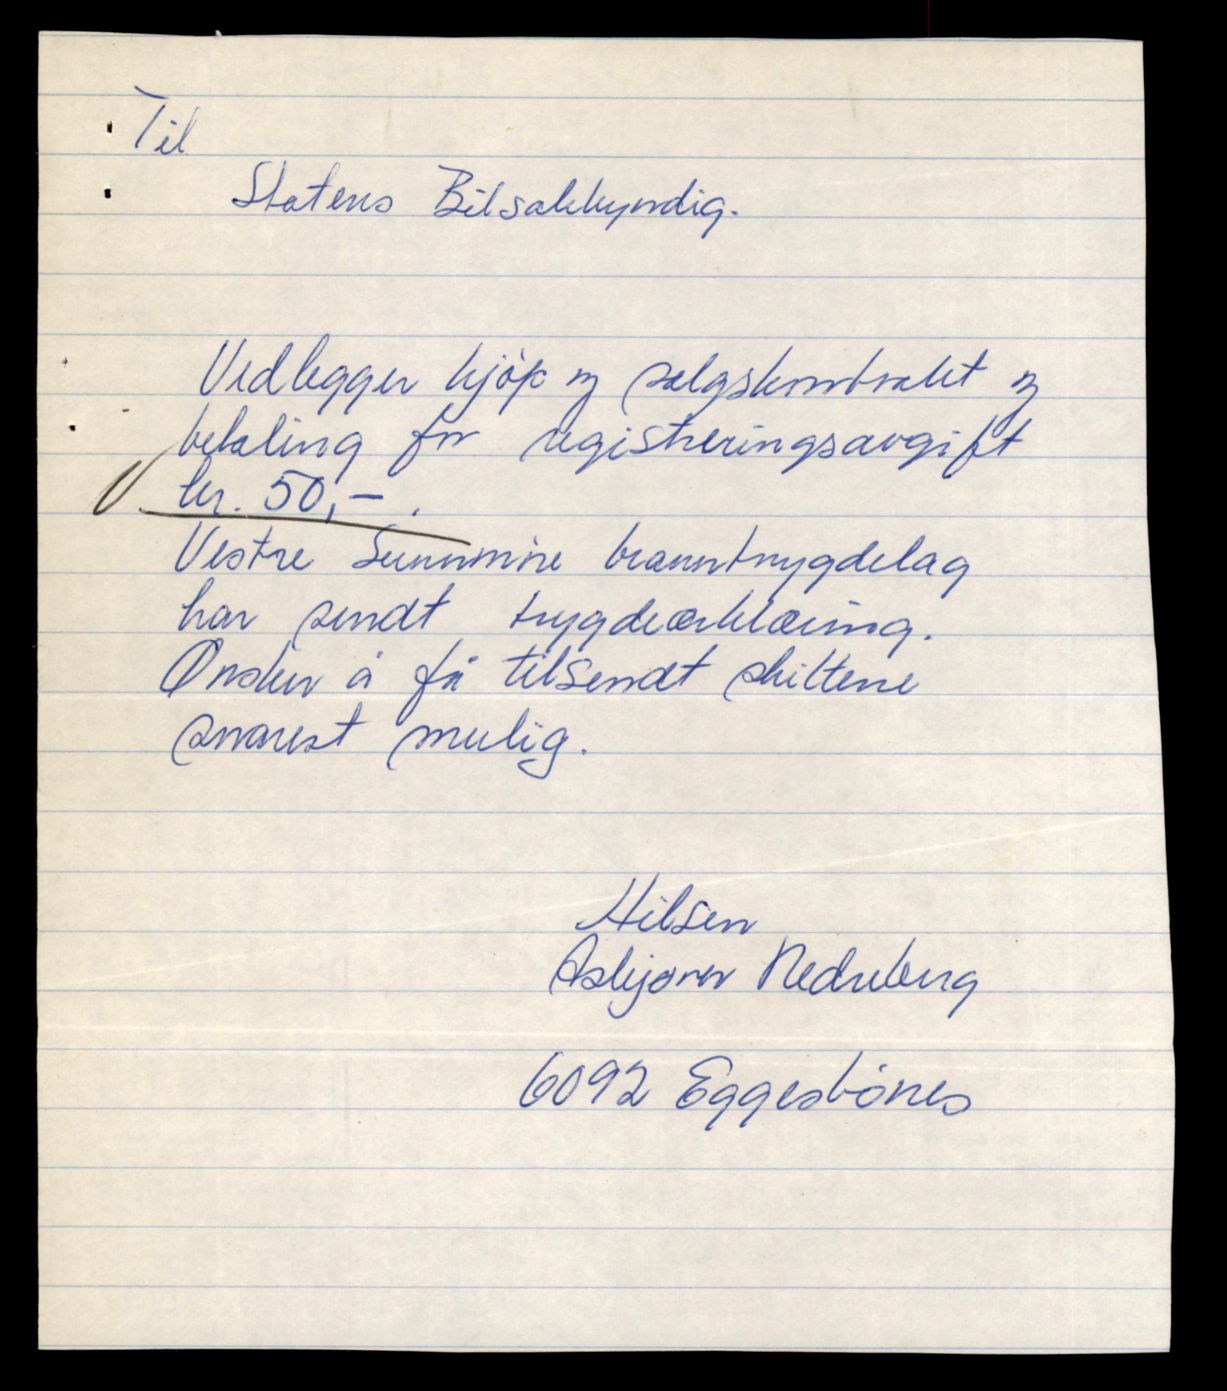 Til
Statens Bilsakkyndig.
Vedlegger kjøp og salgskontrakt og
betaling for registreringsavgift
kr. 50,- .
Vestre Sunnmøre branntrygdelag
har sendt trygdeærklæring.
Ønsker å få tilsendt skiltene
snarest mulig.
Hilsen
Asbjørn Nedreberg
6092 Eggesbønes